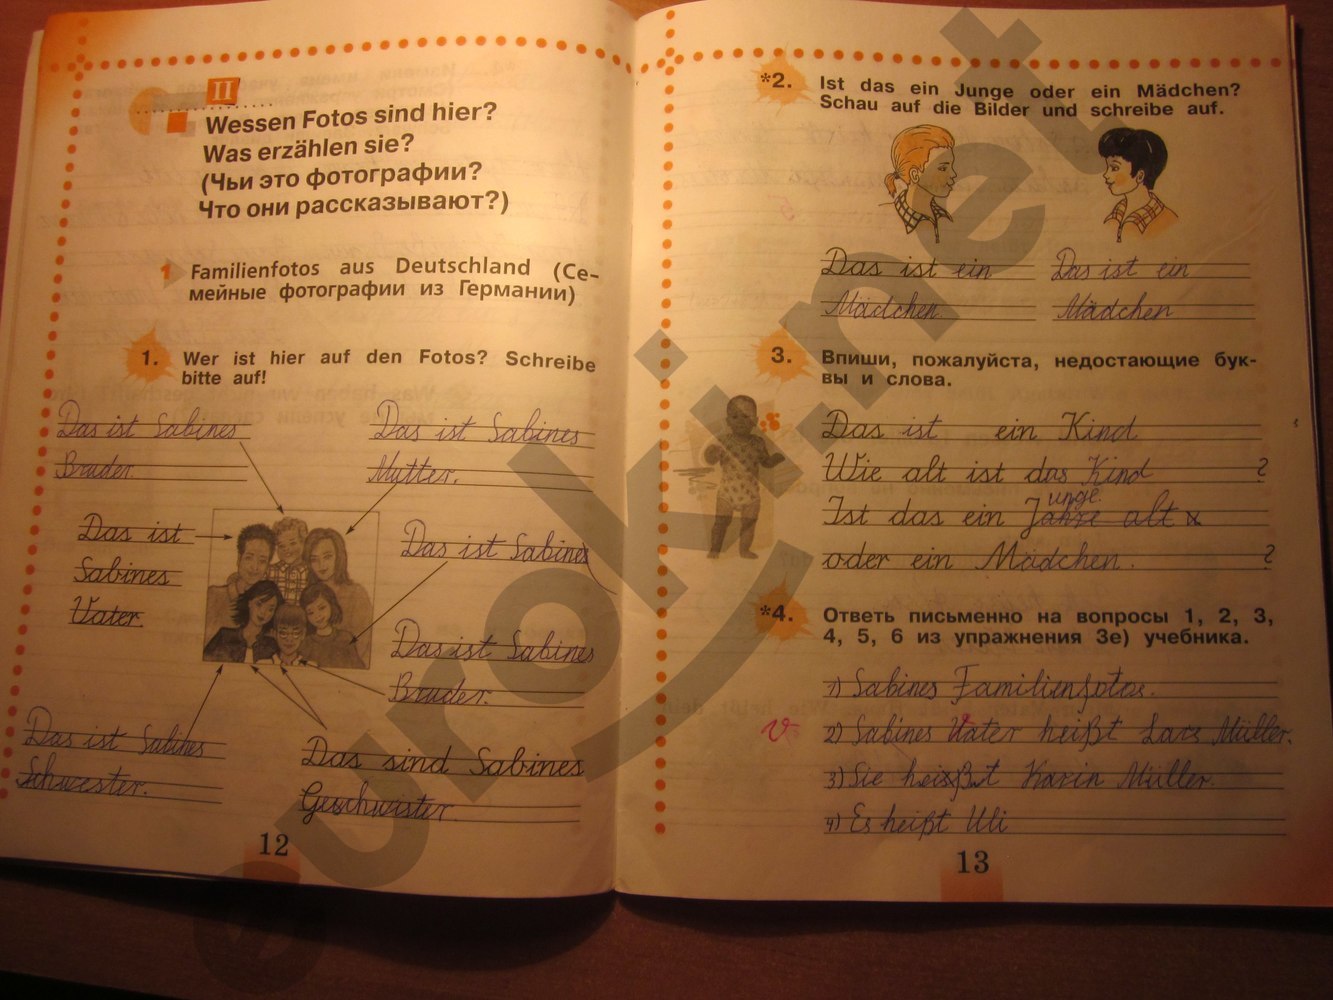 II
Wessen Fotos sind hier?
Was erzählen sie?
(Чьи это фотографии?
Что они рассказывают?)
1 Familienfotos aus Deutschland (Се-
мейные фотографии из Германии)
1. Wer ist hier auf den Fotos? Schreibe
bitte auf!
Das ist Sabines
Bruder.
Das ist Sabines
Mutter.
Das ist
Sabines
Vater.
Das ist Sabines
Das ist Sabines
Bruder.
Das ist Sabines
Schwester.
Das sind Sabines
Geschwister.
12
*2. Ist das ein Junge oder ein Mädchen?
Schau auf die Bilder und schreibe auf.
Das ist ein
Mädchen.
Das ist ein
Mädchen
3. Впиши, пожалуйста, недостающие бук-
вы и слова.
Das ist ein Kind
Wie alt ist das Kind ?
unge
Ist das ein Jahre alt
oder ein Mädchen. ?
*4. Ответь письменно на вопросы 1, 2, 3,
4, 5, 6 из упражнения 3е) учебника.
1) Sabines Familienfotos.
v 2) Sabines Vater heißt Lars Müller.
3) Sie heißt Karin Müller.
4) Es heißt Uli
13
euroki.net